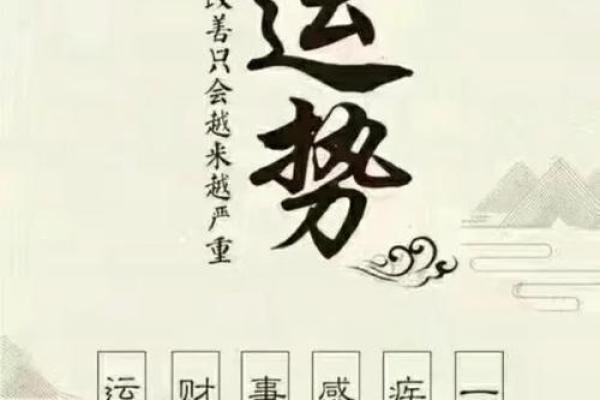 运势
改善只会越来越严重
一
疾
感
事
财
运